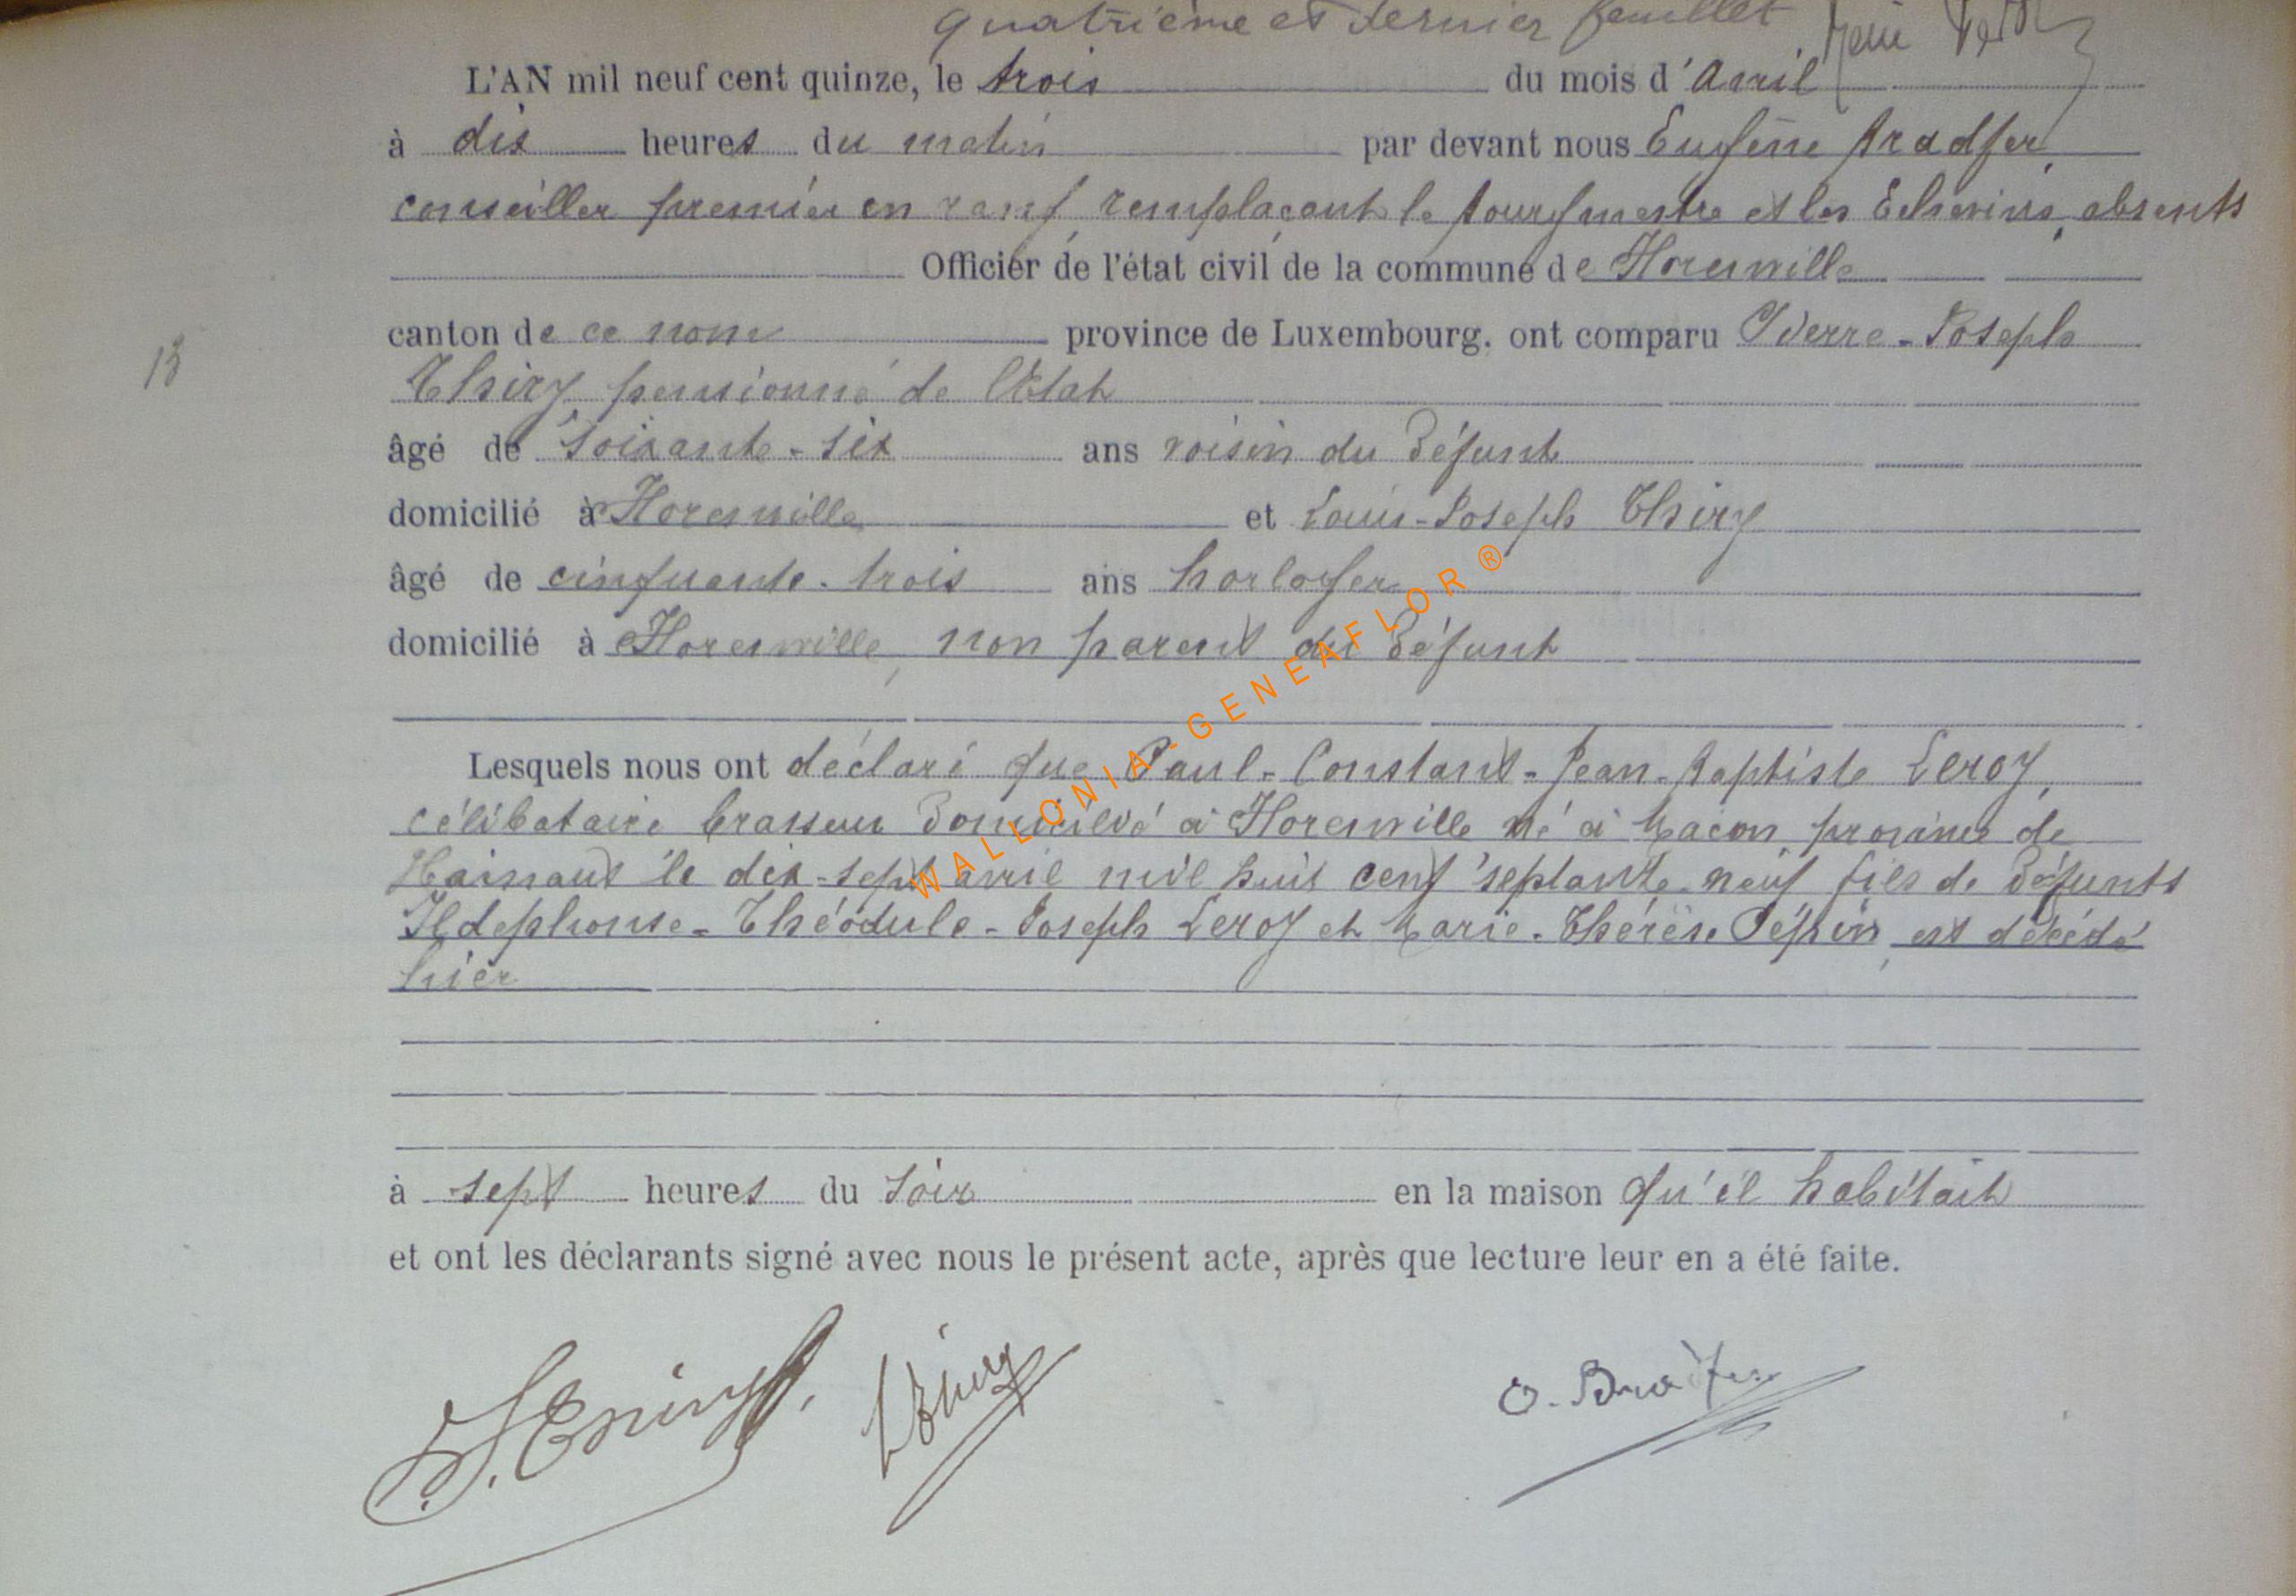 quatrième et dernier feuillet
L'AN mil neuf cent quinze, le trois du mois d'Avril
à dix heures du matin par devant nous Eugène Bradfer,
conseiller premier en rang, remplaçant le Bourgmestre et les Echevins, absents
Officier de l'état civil de la commune de Florenville
canton de ce nom province de Luxembourg, ont comparu Pierre-Joseph
Thiry, pensionné de l'Etat
âgé de soixante-six ans voisin du défunt
domicilié à Florenville et Louis-Joseph Thiry
13
âgé de cinquante-trois ans horloger
domicilié à Florenville, non parent du défunt
Lesquels nous ont déclaré que Paul-Constant-Jean-Baptiste Leroy,
célibataire brasseur domicilié à Florenville né à Macon, province de
Hainaut le dix-sept avril mil huit cent septante-neuf fils de défunts
Ildephonse-Théodule-Joseph Leroy et Marie-Thérèse Pépin, est décédé
hier
à sept heures du soir en la maison qu'il habitait
et ont les déclarants signé avec nous le présent acte, après que lecture leur en a été faite.
J. Thiry
L Thiry
O. Bradfer
WALLONIA-GENEAFLOR®